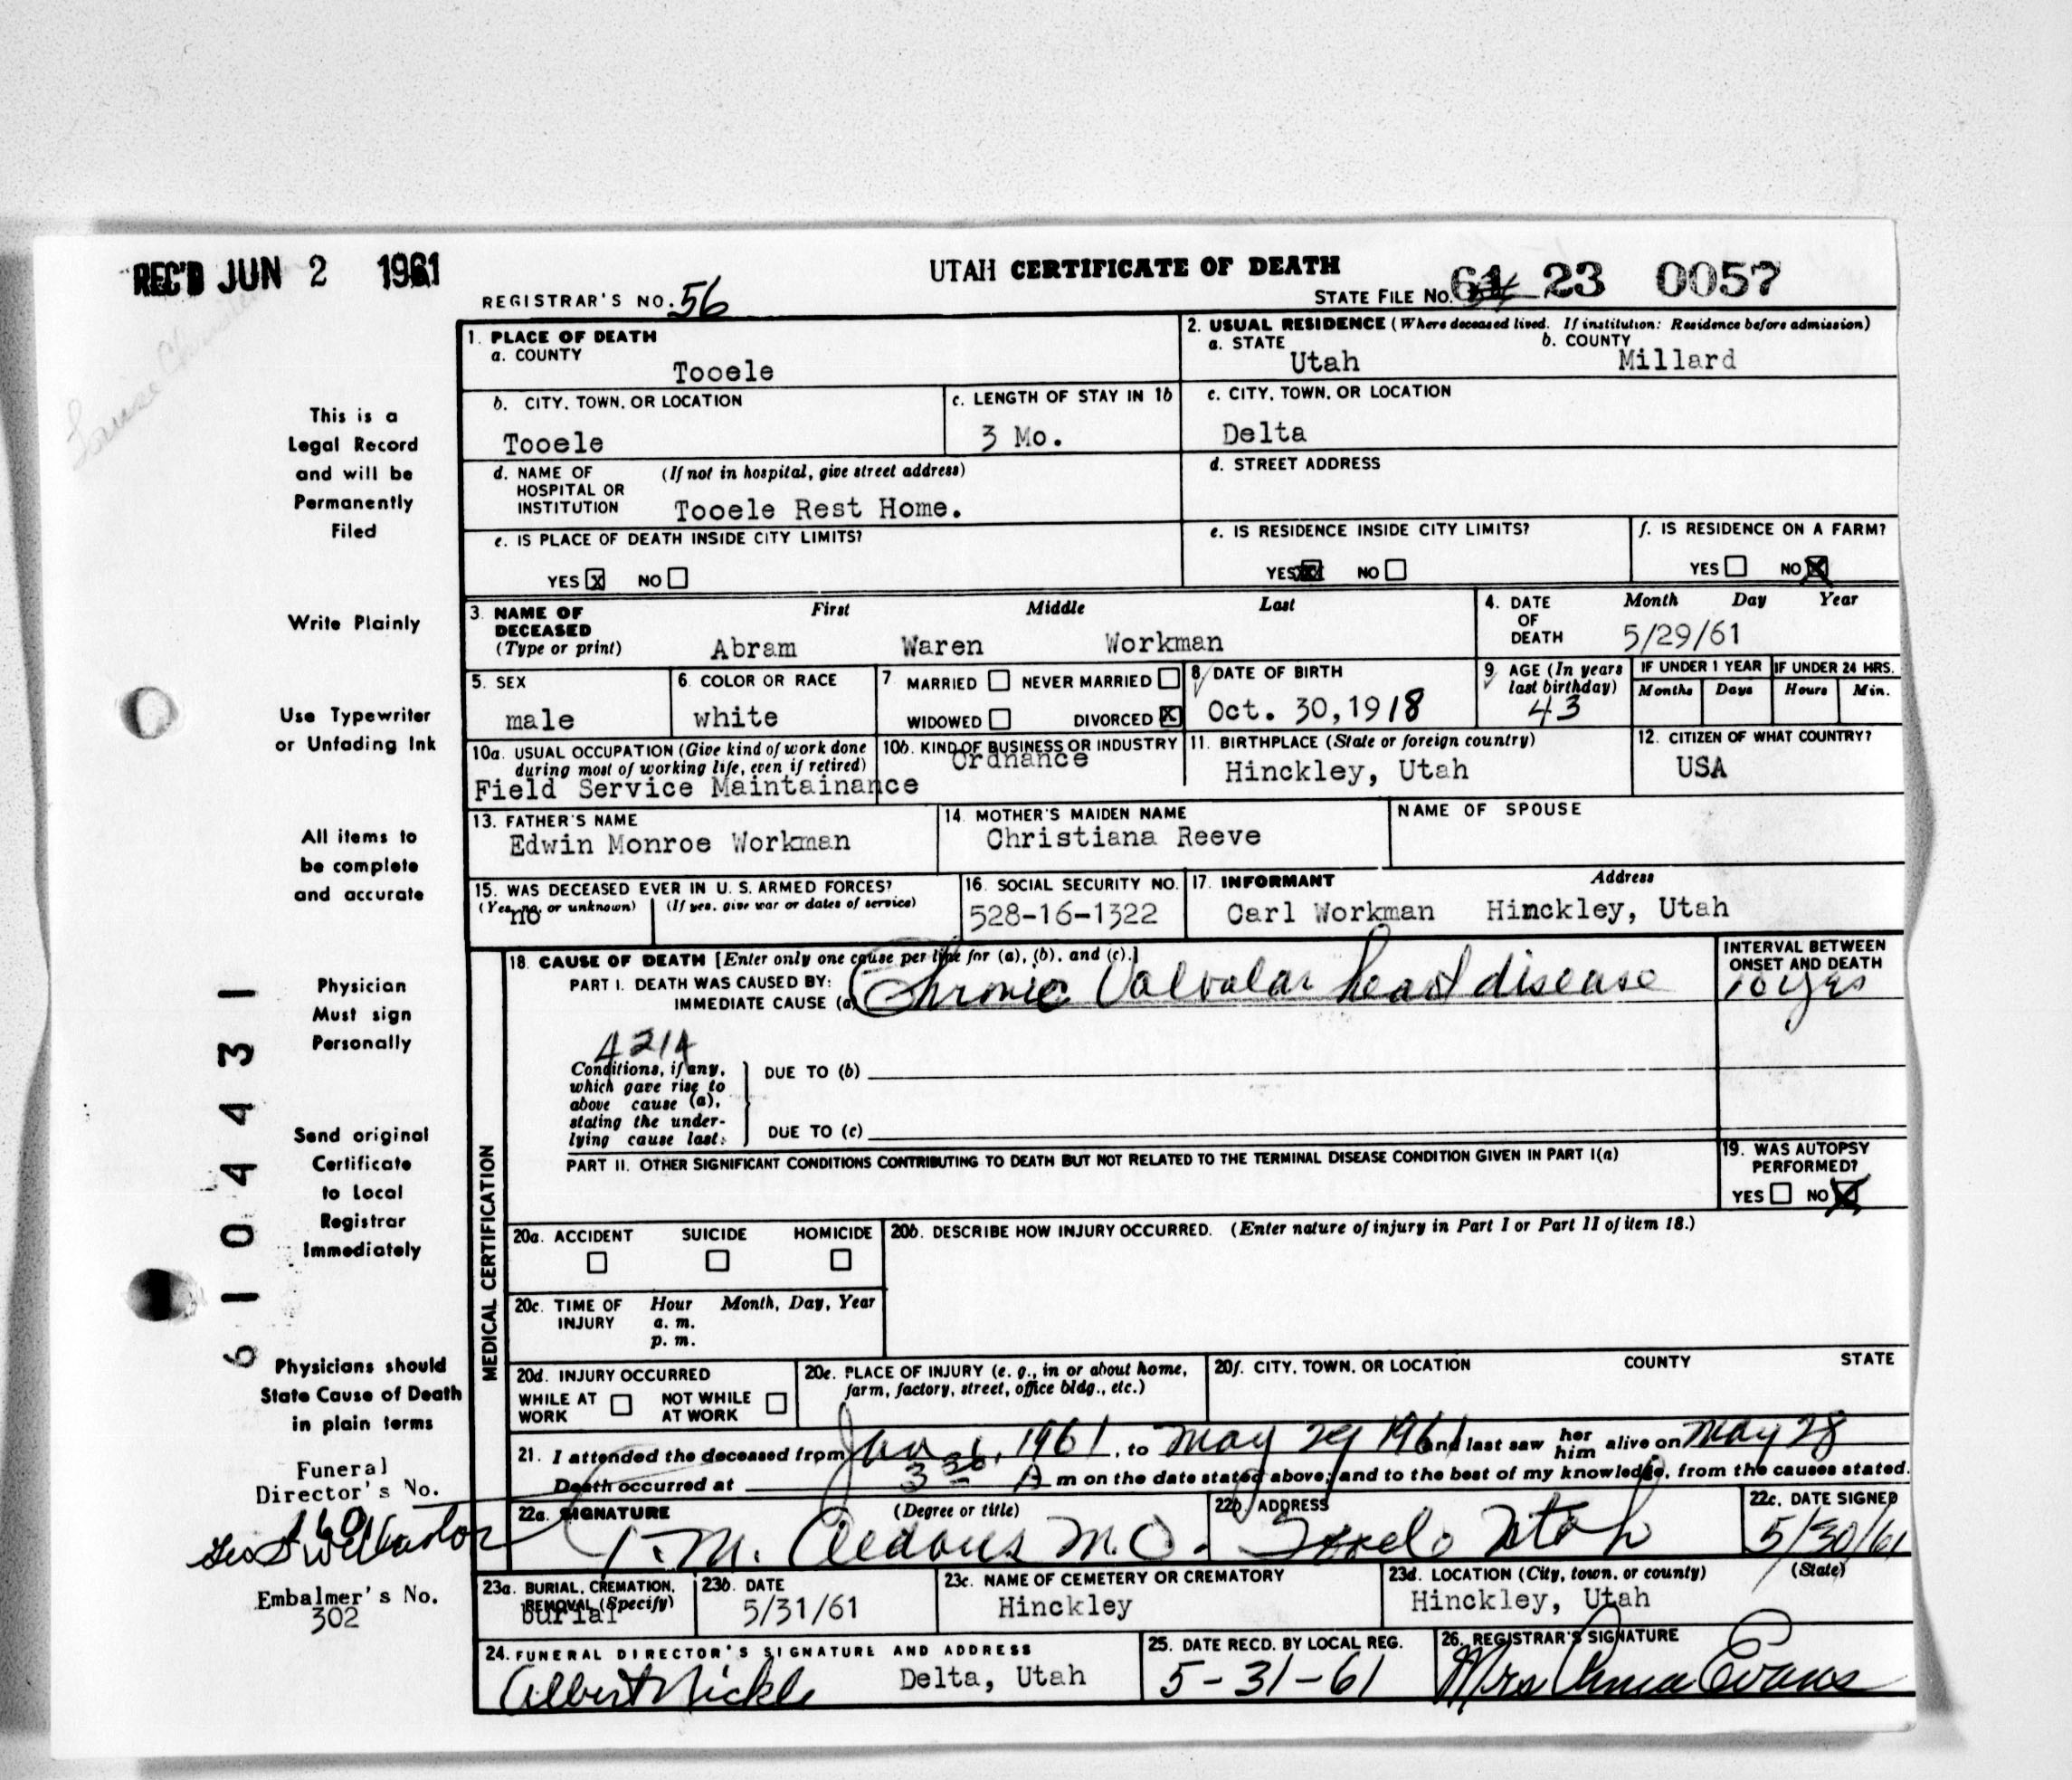 REC'D JUN 2 1961
UTAH CERTIFICATE OF DEATH
REGISTRAR'S NO. 56
STATE FILE NO. 61 23 0057
This is a
Legal Record
and will be
Permanently
Filed
Write Plainly
Use Typewriter
or Unfading Ink
All items to
be complete
and accurate
Physician
Must sign
Personally
Send original
Certificate
to Local
Registrar
Immediately
Physicians should
State Cause of Death
in plain terms
Funeral
Director's No.
Embalmer's No.
302
6104431
1. PLACE OF DEATH
a. COUNTY
Tooele
2. USUAL RESIDENCE (Where deceased lived. If institution: Residence before admission)
a. STATE b. COUNTY
Utah Millard
b. CITY, TOWN, OR LOCATION
Tooele
c. LENGTH OF STAY IN 1b
3 Mo.
c. CITY, TOWN, OR LOCATION
Delta
d. NAME OF (If not in hospital, give street address)
HOSPITAL OR
INSTITUTION Tooele Rest Home.
d. STREET ADDRESS
e. IS PLACE OF DEATH INSIDE CITY LIMITS?
YES X NO
e. IS RESIDENCE INSIDE CITY LIMITS?
YES NO
f. IS RESIDENCE ON A FARM?
YES NO X
3. NAME OF First Middle Last
DECEASED
(Type or print) Abram Waren Workman
4. DATE Month Day Year
OF
DEATH 5/29/61
5. SEX
male
6. COLOR OR RACE
white
7. MARRIED NEVER MARRIED
WIDOWED DIVORCED X
8. DATE OF BIRTH
Oct. 30, 1918
9. AGE (In years
last birthday)
43
IF UNDER 1 YEAR IF UNDER 24 HRS.
Months Days Hours Min.
10a. USUAL OCCUPATION (Give kind of work done
during most of working life, even if retired)
Field Service Maintainance
10b. KIND OF BUSINESS OR INDUSTRY
Ordnance
11. BIRTHPLACE (State or foreign country)
Hinckley, Utah
12. CITIZEN OF WHAT COUNTRY?
USA
13. FATHER'S NAME
Edwin Monroe Workman
14. MOTHER'S MAIDEN NAME
Christiana Reeve
NAME OF SPOUSE
15. WAS DECEASED EVER IN U. S. ARMED FORCES?
(Yes, no, or unknown) (If yes, give war or dates of service)
no
16. SOCIAL SECURITY NO.
528-16-1322
17. INFORMANT Address
Carl Workman Hinckley, Utah
MEDICAL CERTIFICATION
18. CAUSE OF DEATH [Enter only one cause per line for (a), (b), and (c).]
PART I. DEATH WAS CAUSED BY:
IMMEDIATE CAUSE (a) Chronic Valvular heart disease
INTERVAL BETWEEN
ONSET AND DEATH
10 yrs
4214
Conditions, if any,
which gave rise to
above cause (a),
stating the under-
lying cause last:
DUE TO (b)
DUE TO (c)
PART II. OTHER SIGNIFICANT CONDITIONS CONTRIBUTING TO DEATH BUT NOT RELATED TO THE TERMINAL DISEASE CONDITION GIVEN IN PART I(a)
19. WAS AUTOPSY
PERFORMED?
YES NO X
20a. ACCIDENT SUICIDE HOMICIDE
20b. DESCRIBE HOW INJURY OCCURRED. (Enter nature of injury in Part I or Part II of item 18.)
20c. TIME OF Hour Month, Day, Year
INJURY a. m.
p. m.
20d. INJURY OCCURRED
WHILE AT NOT WHILE
WORK AT WORK
20e. PLACE OF INJURY (e. g., in or about home,
farm, factory, street, office bldg., etc.)
20f. CITY, TOWN, OR LOCATION COUNTY STATE
21. I attended the deceased from Jan 1, 1961, to May 29 1961 and last saw her him alive on May 28
Death occurred at 3 30 A m on the date stated above; and to the best of my knowledge, from the causes stated.
22a. SIGNATURE (Degree or title)
M. Aldous M.D.
22b. ADDRESS
Tooele Utah
22c. DATE SIGNED
5/30/61
23a. BURIAL, CREMATION,
REMOVAL (Specify)
burial
23b. DATE
5/31/61
23c. NAME OF CEMETERY OR CREMATORY
Hinckley
23d. LOCATION (City, town, or county) (State)
Hinckley, Utah
24. FUNERAL DIRECTOR'S SIGNATURE AND ADDRESS
Albert Nickle Delta, Utah
25. DATE RECD. BY LOCAL REG.
5-31-61
26. REGISTRAR'S SIGNATURE
Mrs Evans